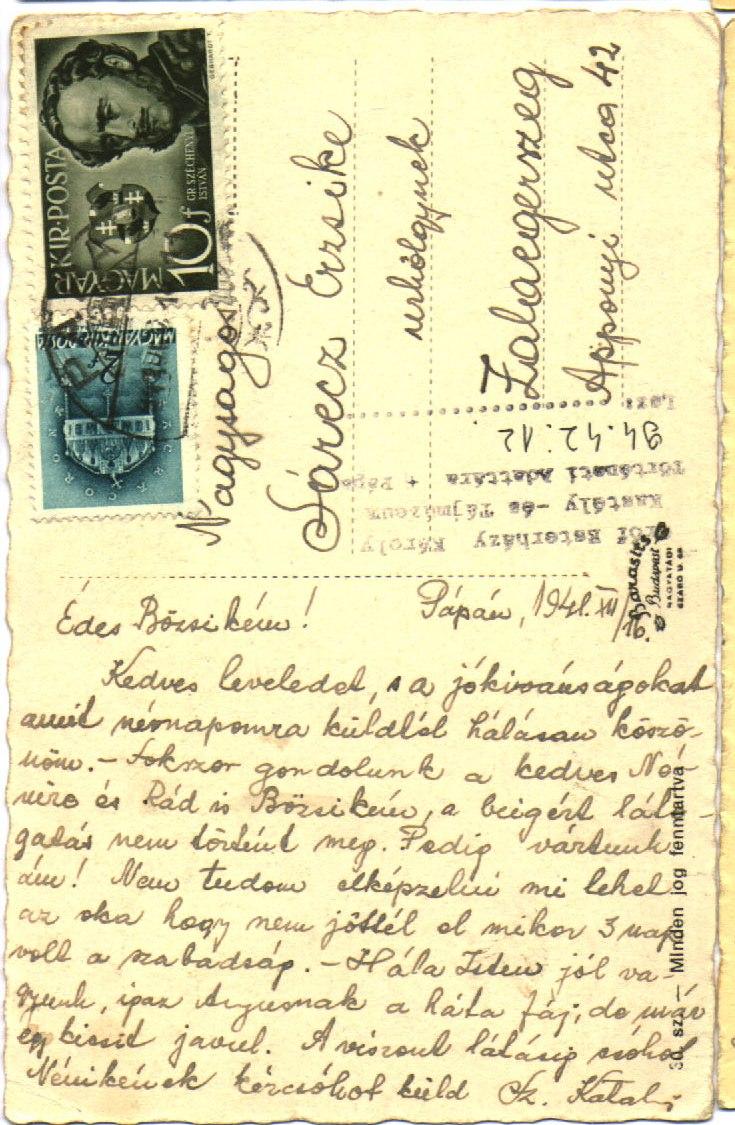 MAGYAR·KIR·POSTA
10f
GR SZÉCHENYI
ISTVÁN
GEBHARDT T.
MAGYAR·KIR·POSTA
Nagyságos
Sárecz Erzsike
urhölgynek
Zalaegerszeg
Apponyi utca 42
Gróf Esterházy Károly
Kastély -és Tájmúzeum
Történeti Adattára + Pápa
94.42.12
Ltsz:
Barasits
Budapest
NAGYATÁDI
SZABÓ U.
30. sz. — Minden jog fenntartva
Édes Bözsikém! Pápán, 1941. XII/16.
Kedves leveledet, s a jókivánságokat
amit névnapomra küldtél hálásan köszö-
nöm. - Sokszor gondolunk a kedves Né-
nire és Rád is Bözsikém, a beigért láto-
gatás nem történt meg. Pedig vártunk
ám! Nem tudom elképzelni mi lehet
az oka hogy nem jöttél el mikor 3 nap
volt a szabadság. - Hála Isten jól va-
gyunk, igaz Anyusnak a háta fáj, de már
egy kissit javul. A viszont látásig csókol
Nénikének kézcsókot küld Sz. Katalin